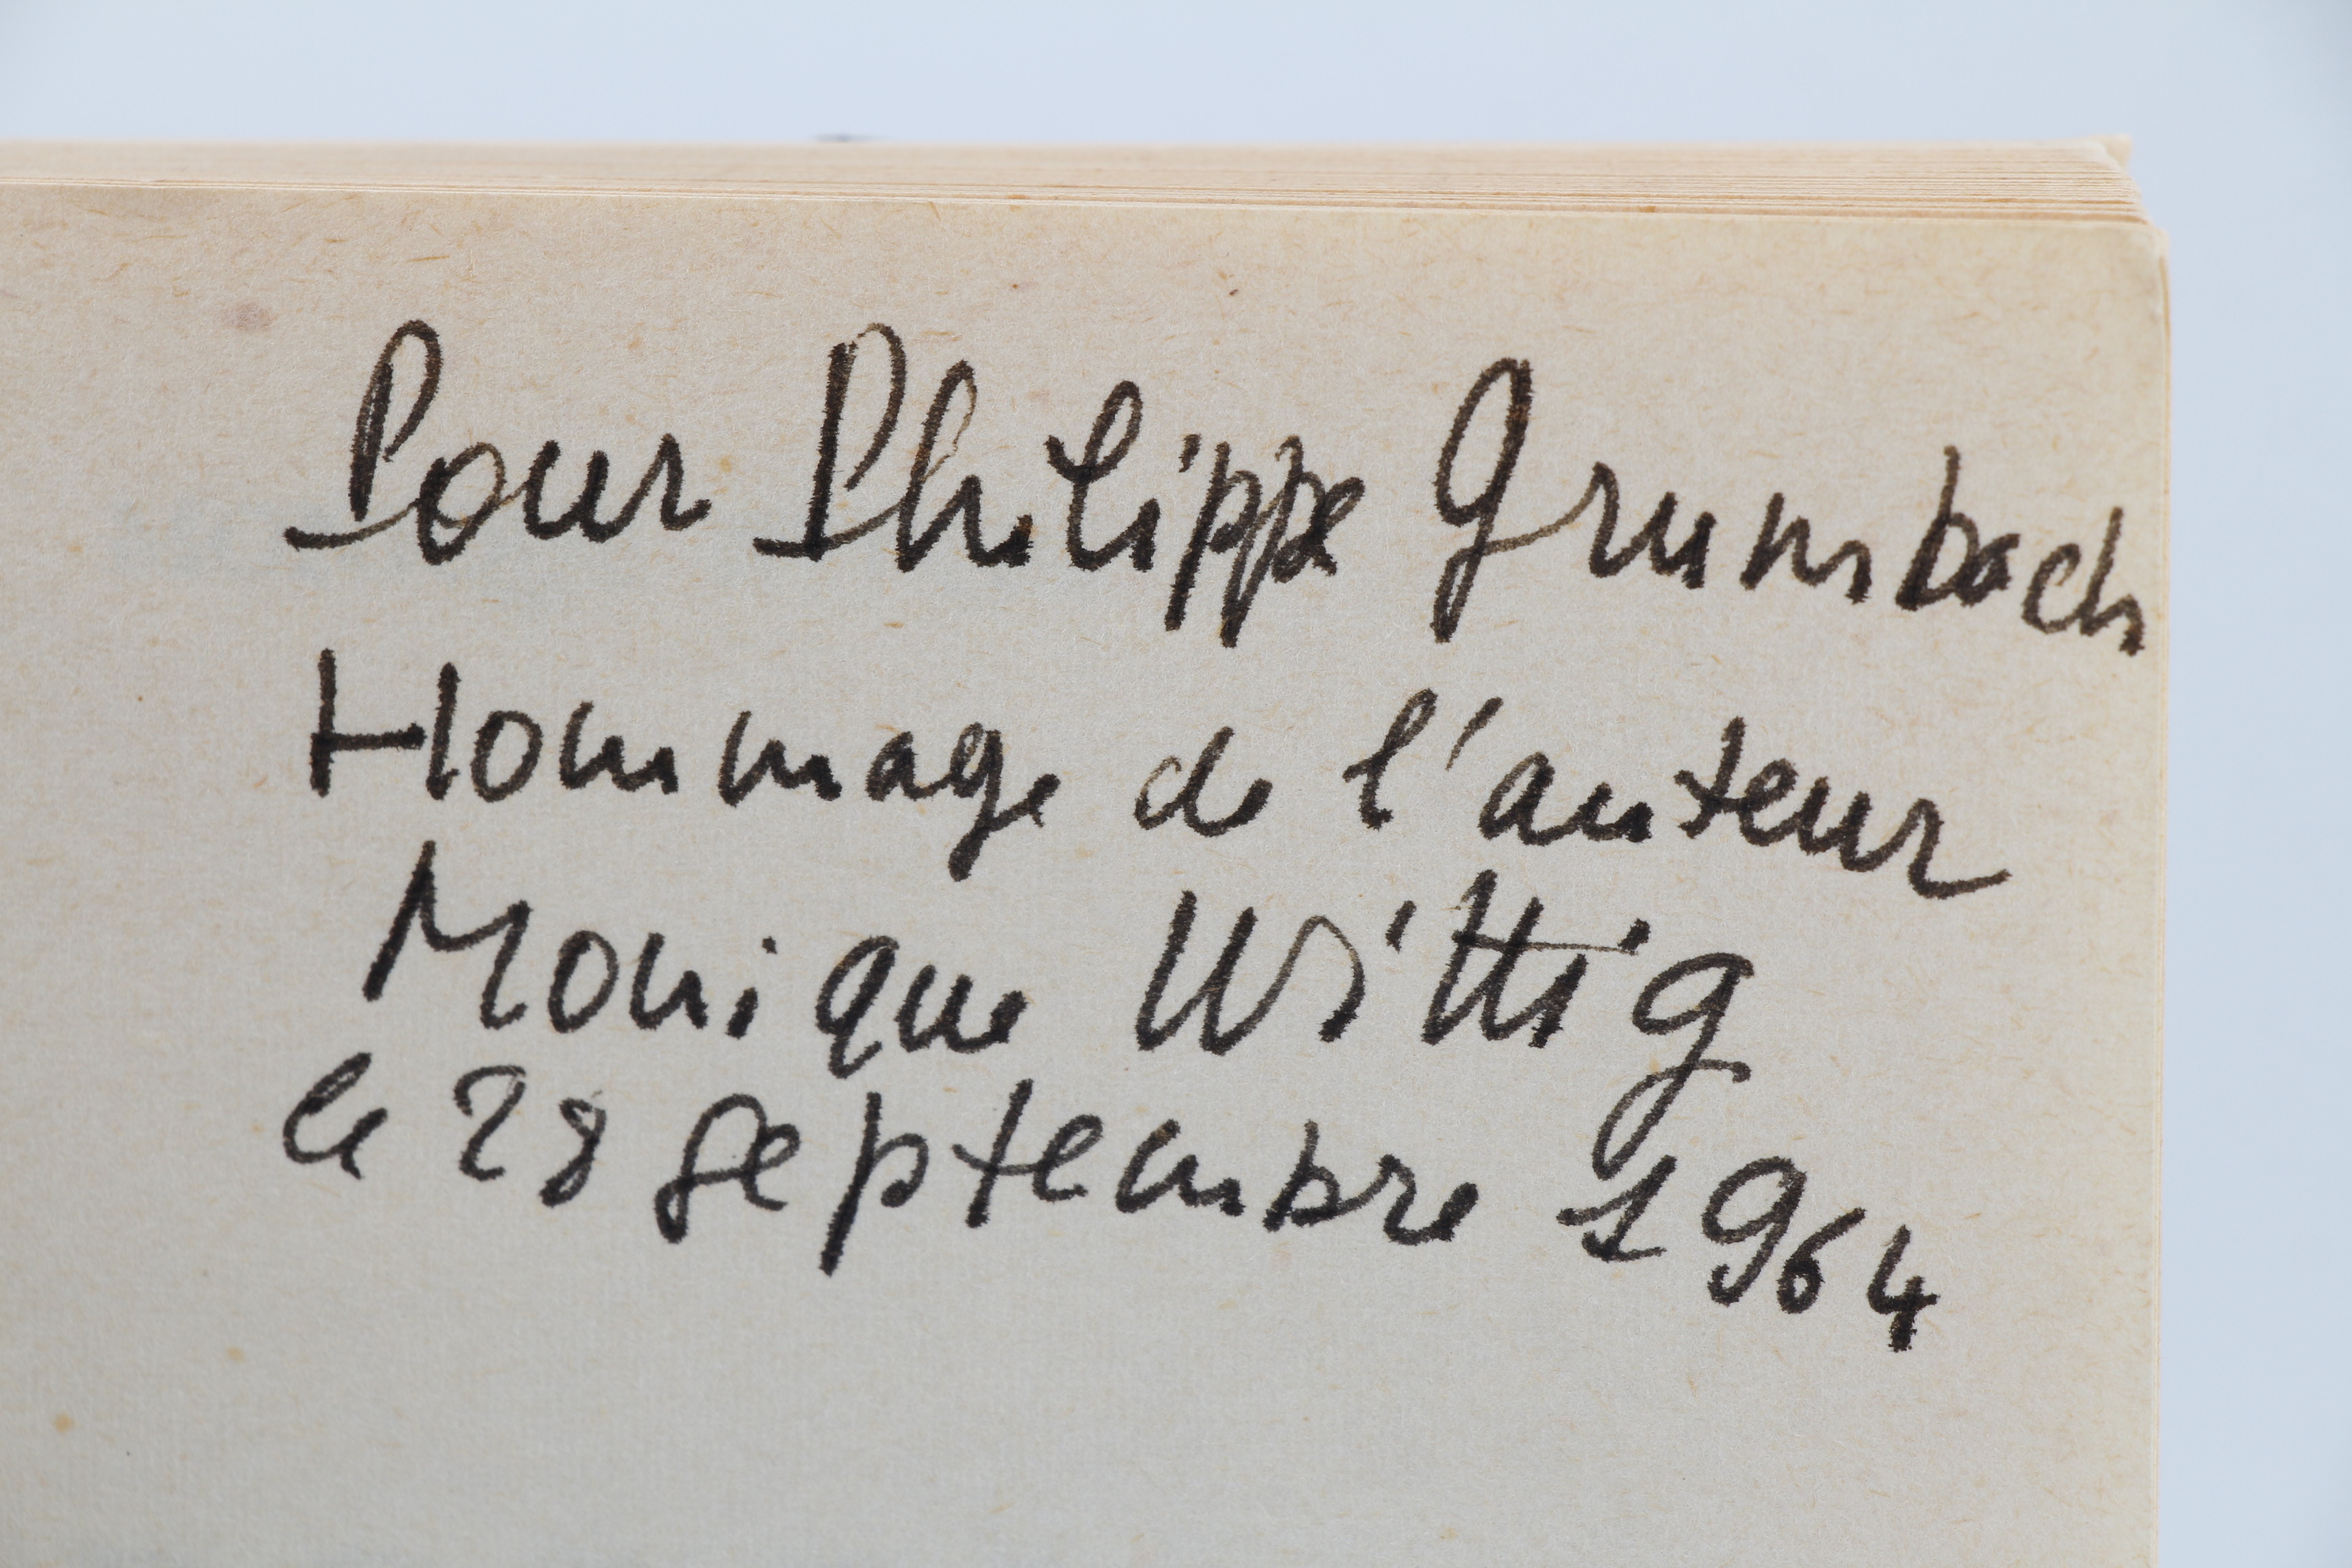 Pour Philippe Grumbach
Hommage de l'auteur
Monique Wittig
le 28 septembre 1964